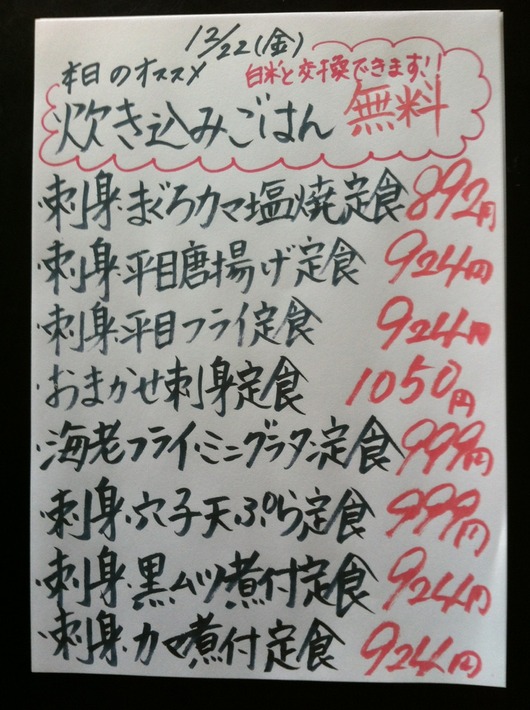 12/22(金)
本日のオススメ 白米と交換できます!!
炊き込みごはん 無料
刺身・まぐろカマ塩焼定食 892円
刺身・平目唐揚げ定食 924円
刺身・平目フライ定食 924円
おまかせ刺身定食 1050円
海老フライ・ミニグラタン定食 999円
刺身・穴子天ぷら定食 999円
刺身・黒ムツ煮付定食 924円
刺身・カマ煮付定食 924円